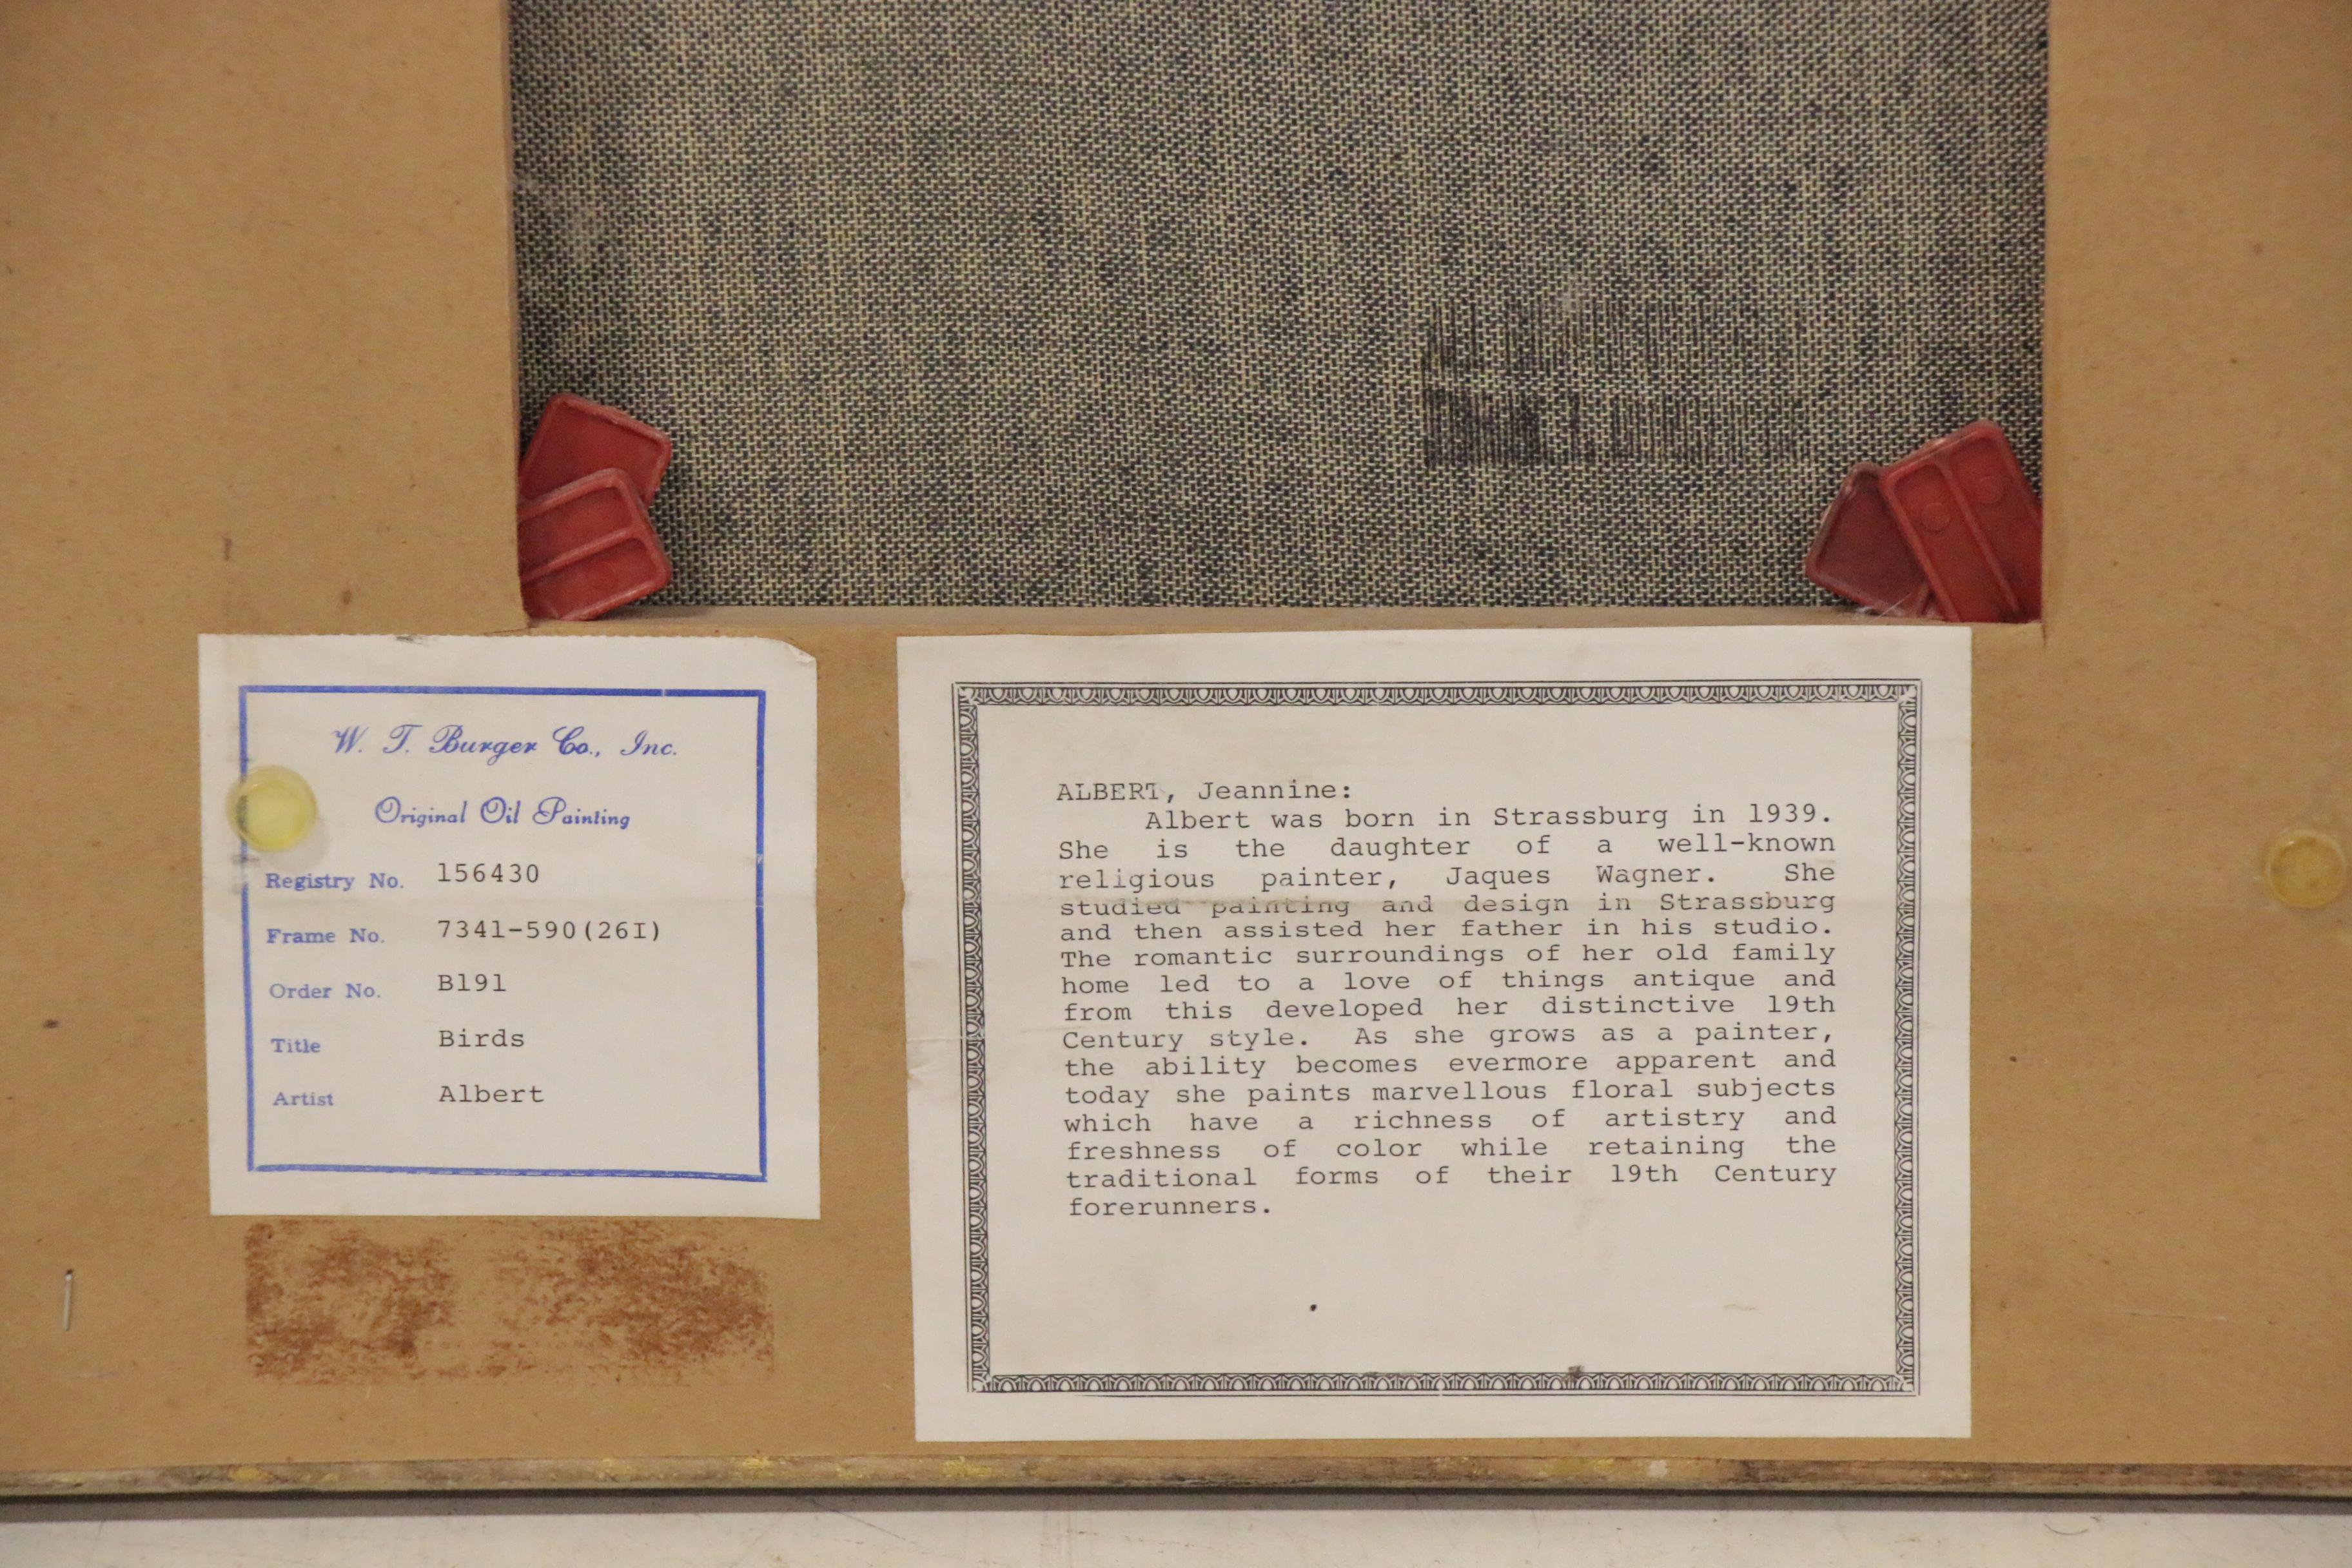 W. T. Burger Co., Inc.
Original Oil Painting
Registry No. 156430
Frame No. 7341-590(26I)
Order No. B191
Title Birds
Artist Albert
ALBERT, Jeannine:
Albert was born in Strassburg in 1939.
She is the daughter of a well-known
religious painter, Jaques Wagner. She
studied painting and design in Strassburg
and then assisted her father in his studio.
The romantic surroundings of her old family
home led to a love of things antique and
from this developed her distinctive 19th
Century style. As she grows as a painter,
the ability becomes evermore apparent and
today she paints marvellous floral subjects
which have a richness of artistry and
freshness of color while retaining the
traditional forms of their 19th Century
forerunners.